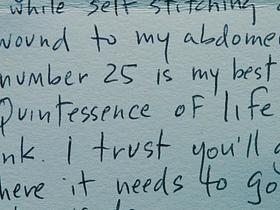 while self stitching a
wound to my abdome
number 25 is my best
Quintessence of life
nk. I trust you'll
here it needs to go